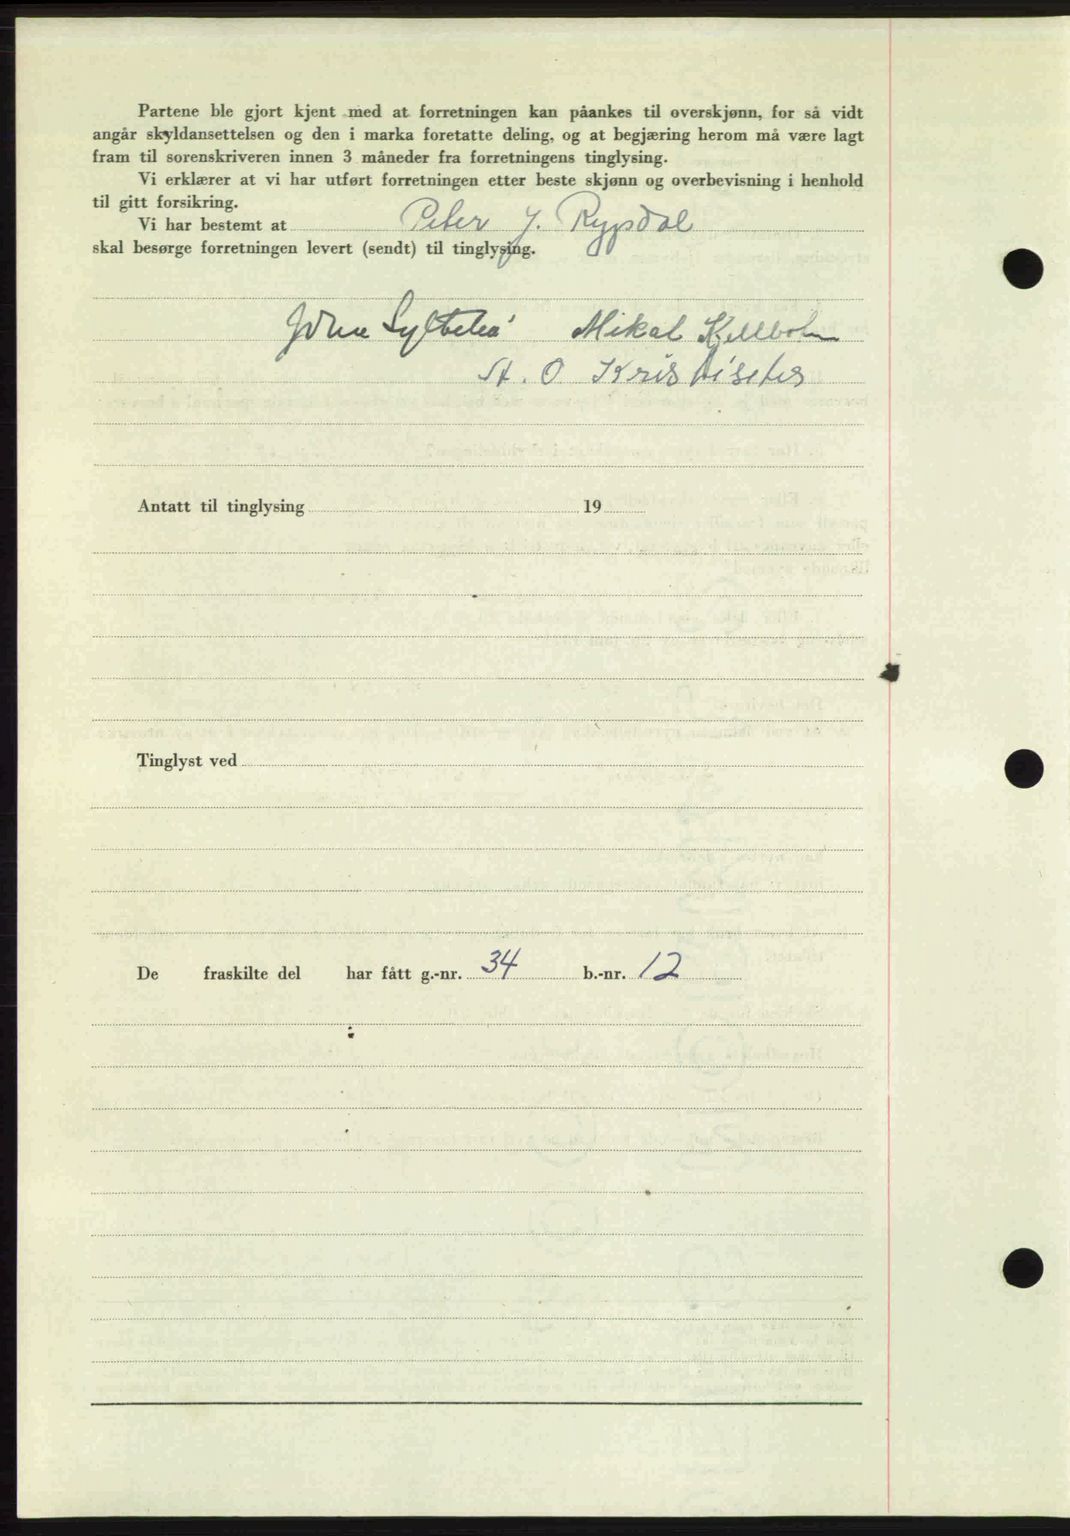 Partene ble gjort kjent med at forretningen kan påankes til overskjønn, for så vidt
angår skyldansettelsen og den i marka foretatte deling, og at begjæring herom må være lagt
fram til sorenskriveren innen 3 måneder fra forretningens tinglysing.
Vi erklærer at vi har utført forretningen etter beste skjønn og overbevisning i henhold
til gitt forsikring.
Vi har bestemt at Peter J. Rypdal
skal besørge forretningen levert (sendt) til tinglysing.
Mikal
O Kristiseter
Antatt til tinglysing 19
Tinglyst ved
De fraskilte del har fått g.-nr. 34 b.-nr. 12